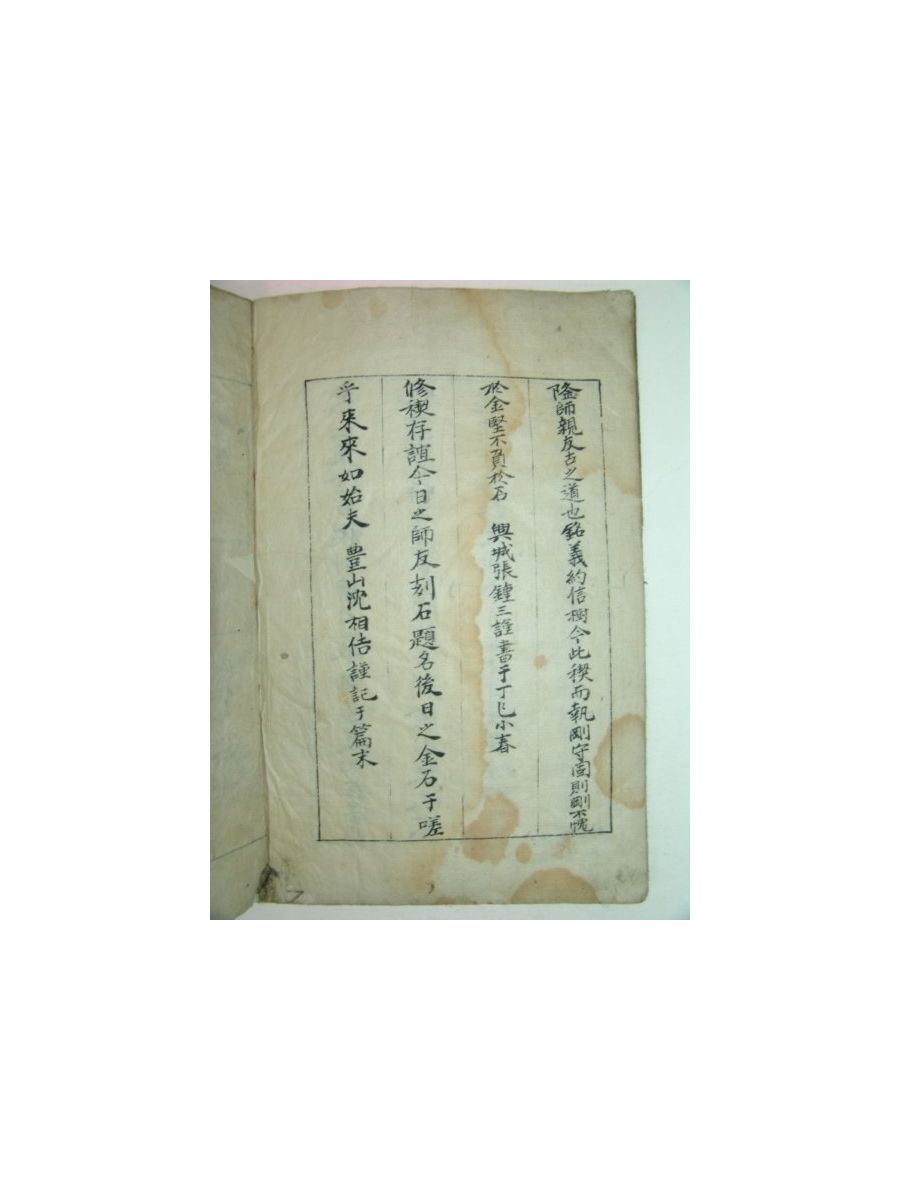 隆師親友古之道也銘義約信樹今此稧而執剛守固則剛不愧
於金堅不負於石 興城張鍾三謹書于丁巳小春
修稧存誼今日之師友刻石題名後日之金石于嗟
乎來來如始夫 豊山沈相佶謹記于篇末